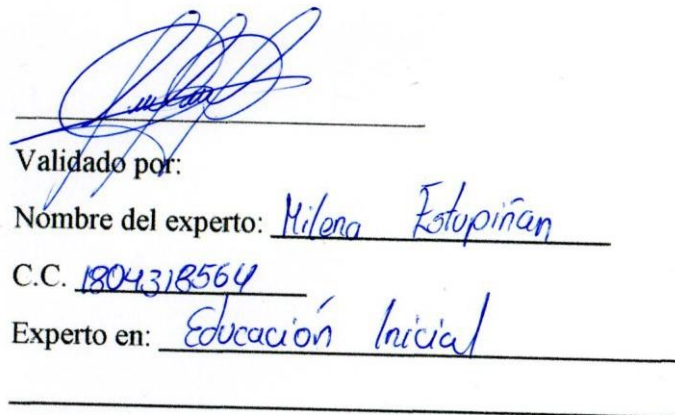 Validado por:
Nombre del experto: Milena Estupiñan
C.C. 1804318564
Experto en: Educación Inicial